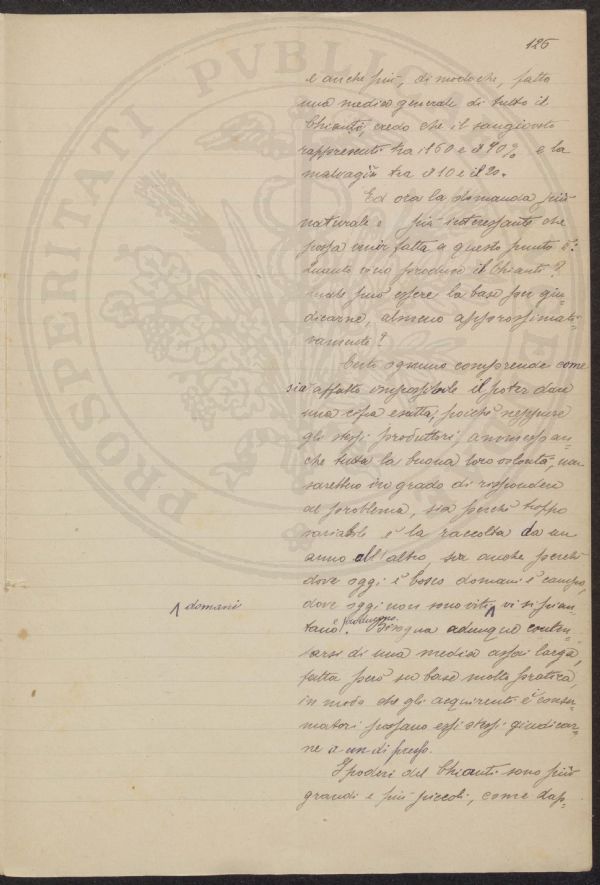 126
e anche più, di modo che, fatta
una media generale di tutto il
Chianti, credo che il sangioveto
rappresenti tra il 60 e il 70% e la
malvagia tra il 10 e il 20.
Ed ora la domanda più
naturale e più interessante che
possa venir fatta a questo punto è:
Quanto vino produce il Chianti?
Quale può essere la base per giu=
dicarne, almeno approssimati=
vamente?
Certo ognuno comprende come
sia affatto impossibile il poter dare
una cifra esatta, poichè neppure
gli stessi produttori,
che tutta la buona loro volontà, non
sarebbero in grado di rispondere
al problema, sia perchè troppo
variabile è la raccolta da un
anno all'altro, sia anche perchè
dove oggi è bosco domani è campo,
dove oggi non sono viti ʌ vi si pian=
ʌ domani
tano. Bisogna adunque conten=
tarsi di una media assai larga,
fatta però su base molto pratica,
in modo che gli acquirenti e consu=
matori possano essi stessi giudicar=
ne a un di presso.
I poderi del Chianti sono più
grandi e più piccoli, come dap=
PROSPERITATI PVBLICAE